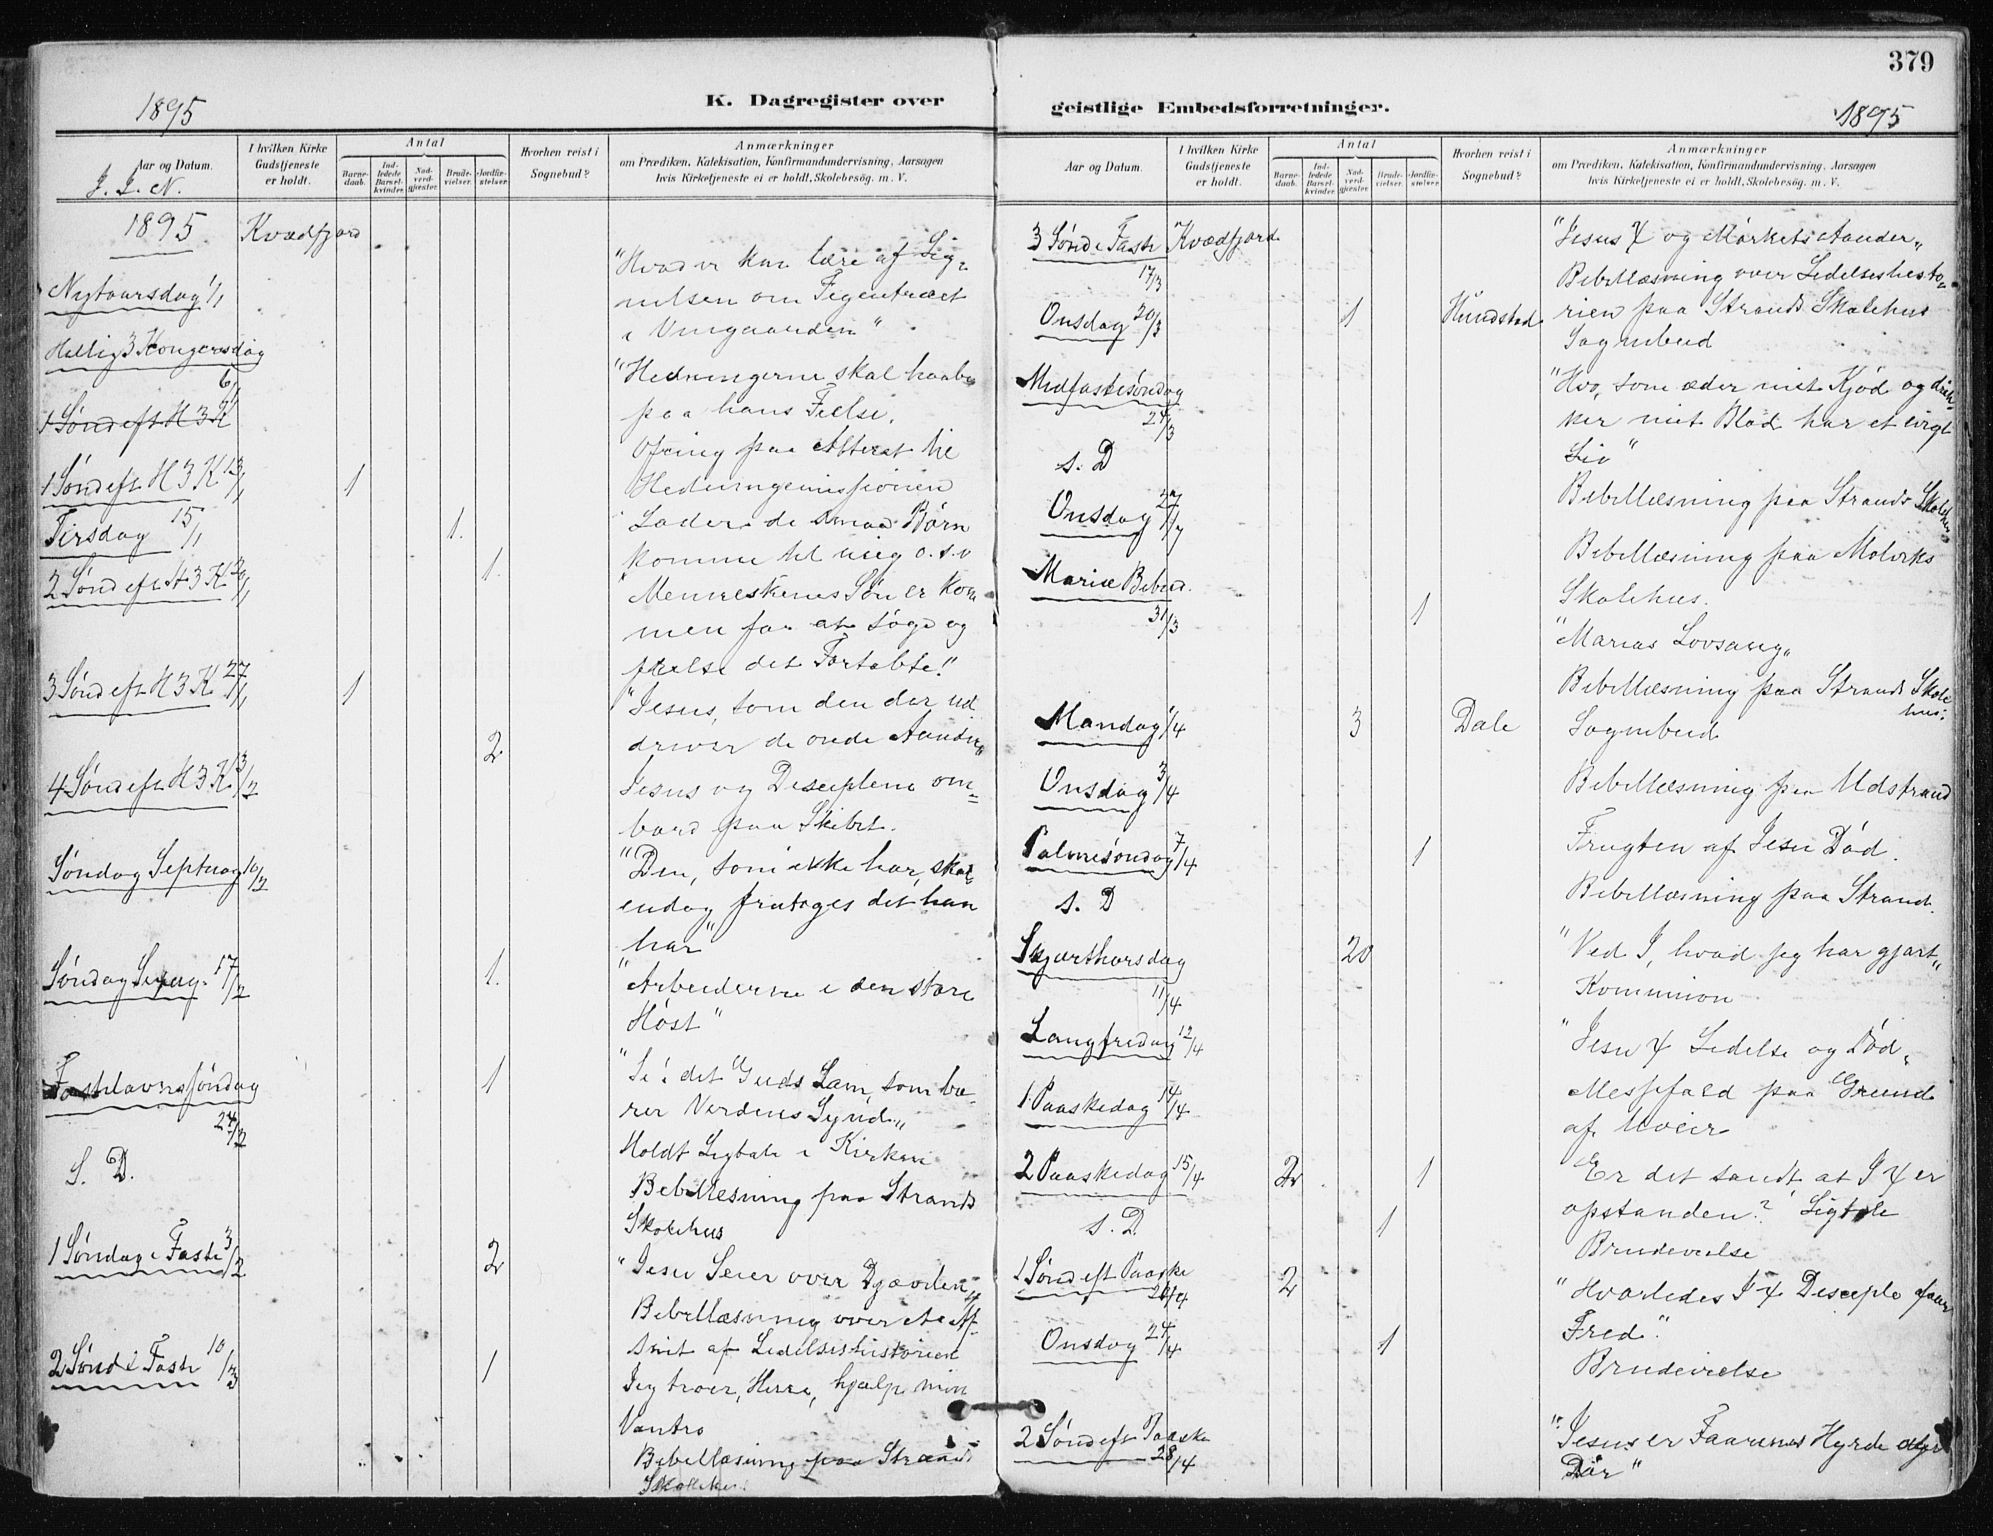 379
1895
K. Dagregister over
geistlige Embedsforretninger.
1895
Aar og Datum.
I hvilken Kirke Gudstjeneste er holdt.
Antal
Barnedaab.
Indledede Barselkvinder.
Nadverdgjester.
Brudevielser.
Jordfæstelser.
Hvorhen reist i Sognebud?
Anmærkninger
om Prædiken, Katekisation, Konfirmandundervisning, Aarsagen
hvis Kirketjeneste ei er holdt, Skolebesøg. m. V.
J. I. N.
1895 Kvædfjord
Nytaarsdag 1/1
"Hvad vi kan lære af Lig-
nelsen om Figentræet
i Vingaarden"
Hellig 3 Kongersdag
6/1
"Hedningerne skal haabe
paa hans Frelse.
1 Sønd eft H 3 K
Ofring paa Alteret til
Hedningemissionen
1 Sønd eft H 3 K 13/1 1
Lader de smaa Børn
komme til mig o.s.v
Tirsdag 15/1 1.
2 Sønd eft H 3 K 20/1 1.
"Menneskenes Søn er kom
men for at søge og
frelse det Fortabte!"
3 Sønd eft H 3 K 27/1 1 2.
"Jesus, som den der ud
driver de onde Aander"
4 Sønd eft H 3 K 3/2
Jesus og Disciplene om-
bord paa Skibet.
Søndag Septuag 10/2
"Den, som ikke har, skal
endog fratages det han
har"
Søndag Sexag. 17/2 1.
"Arbeiderne i den store
Høst"
Fastelavnssøndag
24/2 1
"Se det Guds Lam, som bæ-
rer Verdens Synd"
Holdt Ligtale i Kirken
S. D.
Bibellæsning paa Strands
Skolehus
1 Søndag i Faste 3/2 2
"Jesu Seier over Djævlen"
Bibellæsning over Af-
snit af Lidelseshistorien
2 Sønd i Faste 10/3 1
Jeg troer, Herre, hjælp min
Vantro
Bibellæsning paa Strands
Skolehus.
Aar og Datum.
I hvilken Kirke Gudstjeneste er holdt.
Antal
Barnedaab.
Indledede Barselkvinder.
Nadverdgjester.
Brudevielser.
Jordfæstelser.
Hvorhen reist i Sognebud?
Anmærkninger
om Prædiken, Katekisation, Konfirmandundervisning, Aarsagen
hvis Kirketjeneste ei er holdt, Skolebesøg. m. V.
3 Sønd i Faste Kvædfjord
17/3
"Jesus X og Mørkets Aander"
Bibellæsning over Lidelseshisto-
rien paa Strands Skolehus
Onsdag 20/3 1 Hundstad
Sognebud
Midfastesøndag
24/3
"Hvo, som æder mit Kjød og drik-
ker mit Blod har et evigt
Liv"
s. D
Bibellæsning paa Strands Skolehus
Onsdag 27/
Bibellæsning paa Molviks
Skolehus.
Mariæ Bebud.
31/3 1
"Marias Lovsang"
Bibellæsning paa Strands Skole
hus.
Mandag 1/4 3 Dale
Sognebud
Onsdag 3/4
Bibellæsning paa Udstrand
Palmesøndag 7/4 1
Frugten af Jesu Død.
s. D
Bibellæsning paa Strand.
Skjærthorsdag 20
11/4
"Ved I, hvad jeg har gjort"
Kommunion
Langfredag 12/4
"Jesu X Lidelse og Død"
1 Paaskedag 14/4
Messefald paa Grund
af Uveir
2 Paaskedag 15/4 2 1
Er det sandt at J X er
opstanden? Ligtale
s. D. 1
Brudevielse
1 Sønd eft Paaske
2
"Hvorledes J X Disciple faaer
Fred".
Onsdag 24/4 1
Brudevielse
2 Sønd eft Paaske
28/4
"Jesus er Faarenes Hyrde og
Dør"